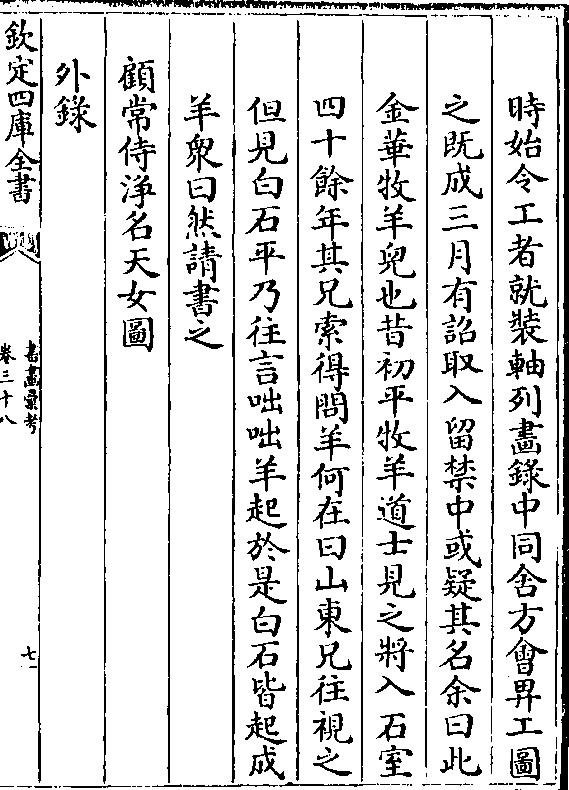 時始令工者就裝軸列畫錄中同舍方會畀工圖
之既成三月有詔取入留禁中或疑其名余曰此
金華牧羊兒也昔初平牧羊道士見之將入石室
四十餘年其兄索得問羊何在曰山東兄往視之
但見白石平乃往言咄咄羊起於是白石皆起成
羊眾曰然請書之
顧常侍淨名天女圖
外錄
欽定四庫全書
書畫彙考
卷三十八
七